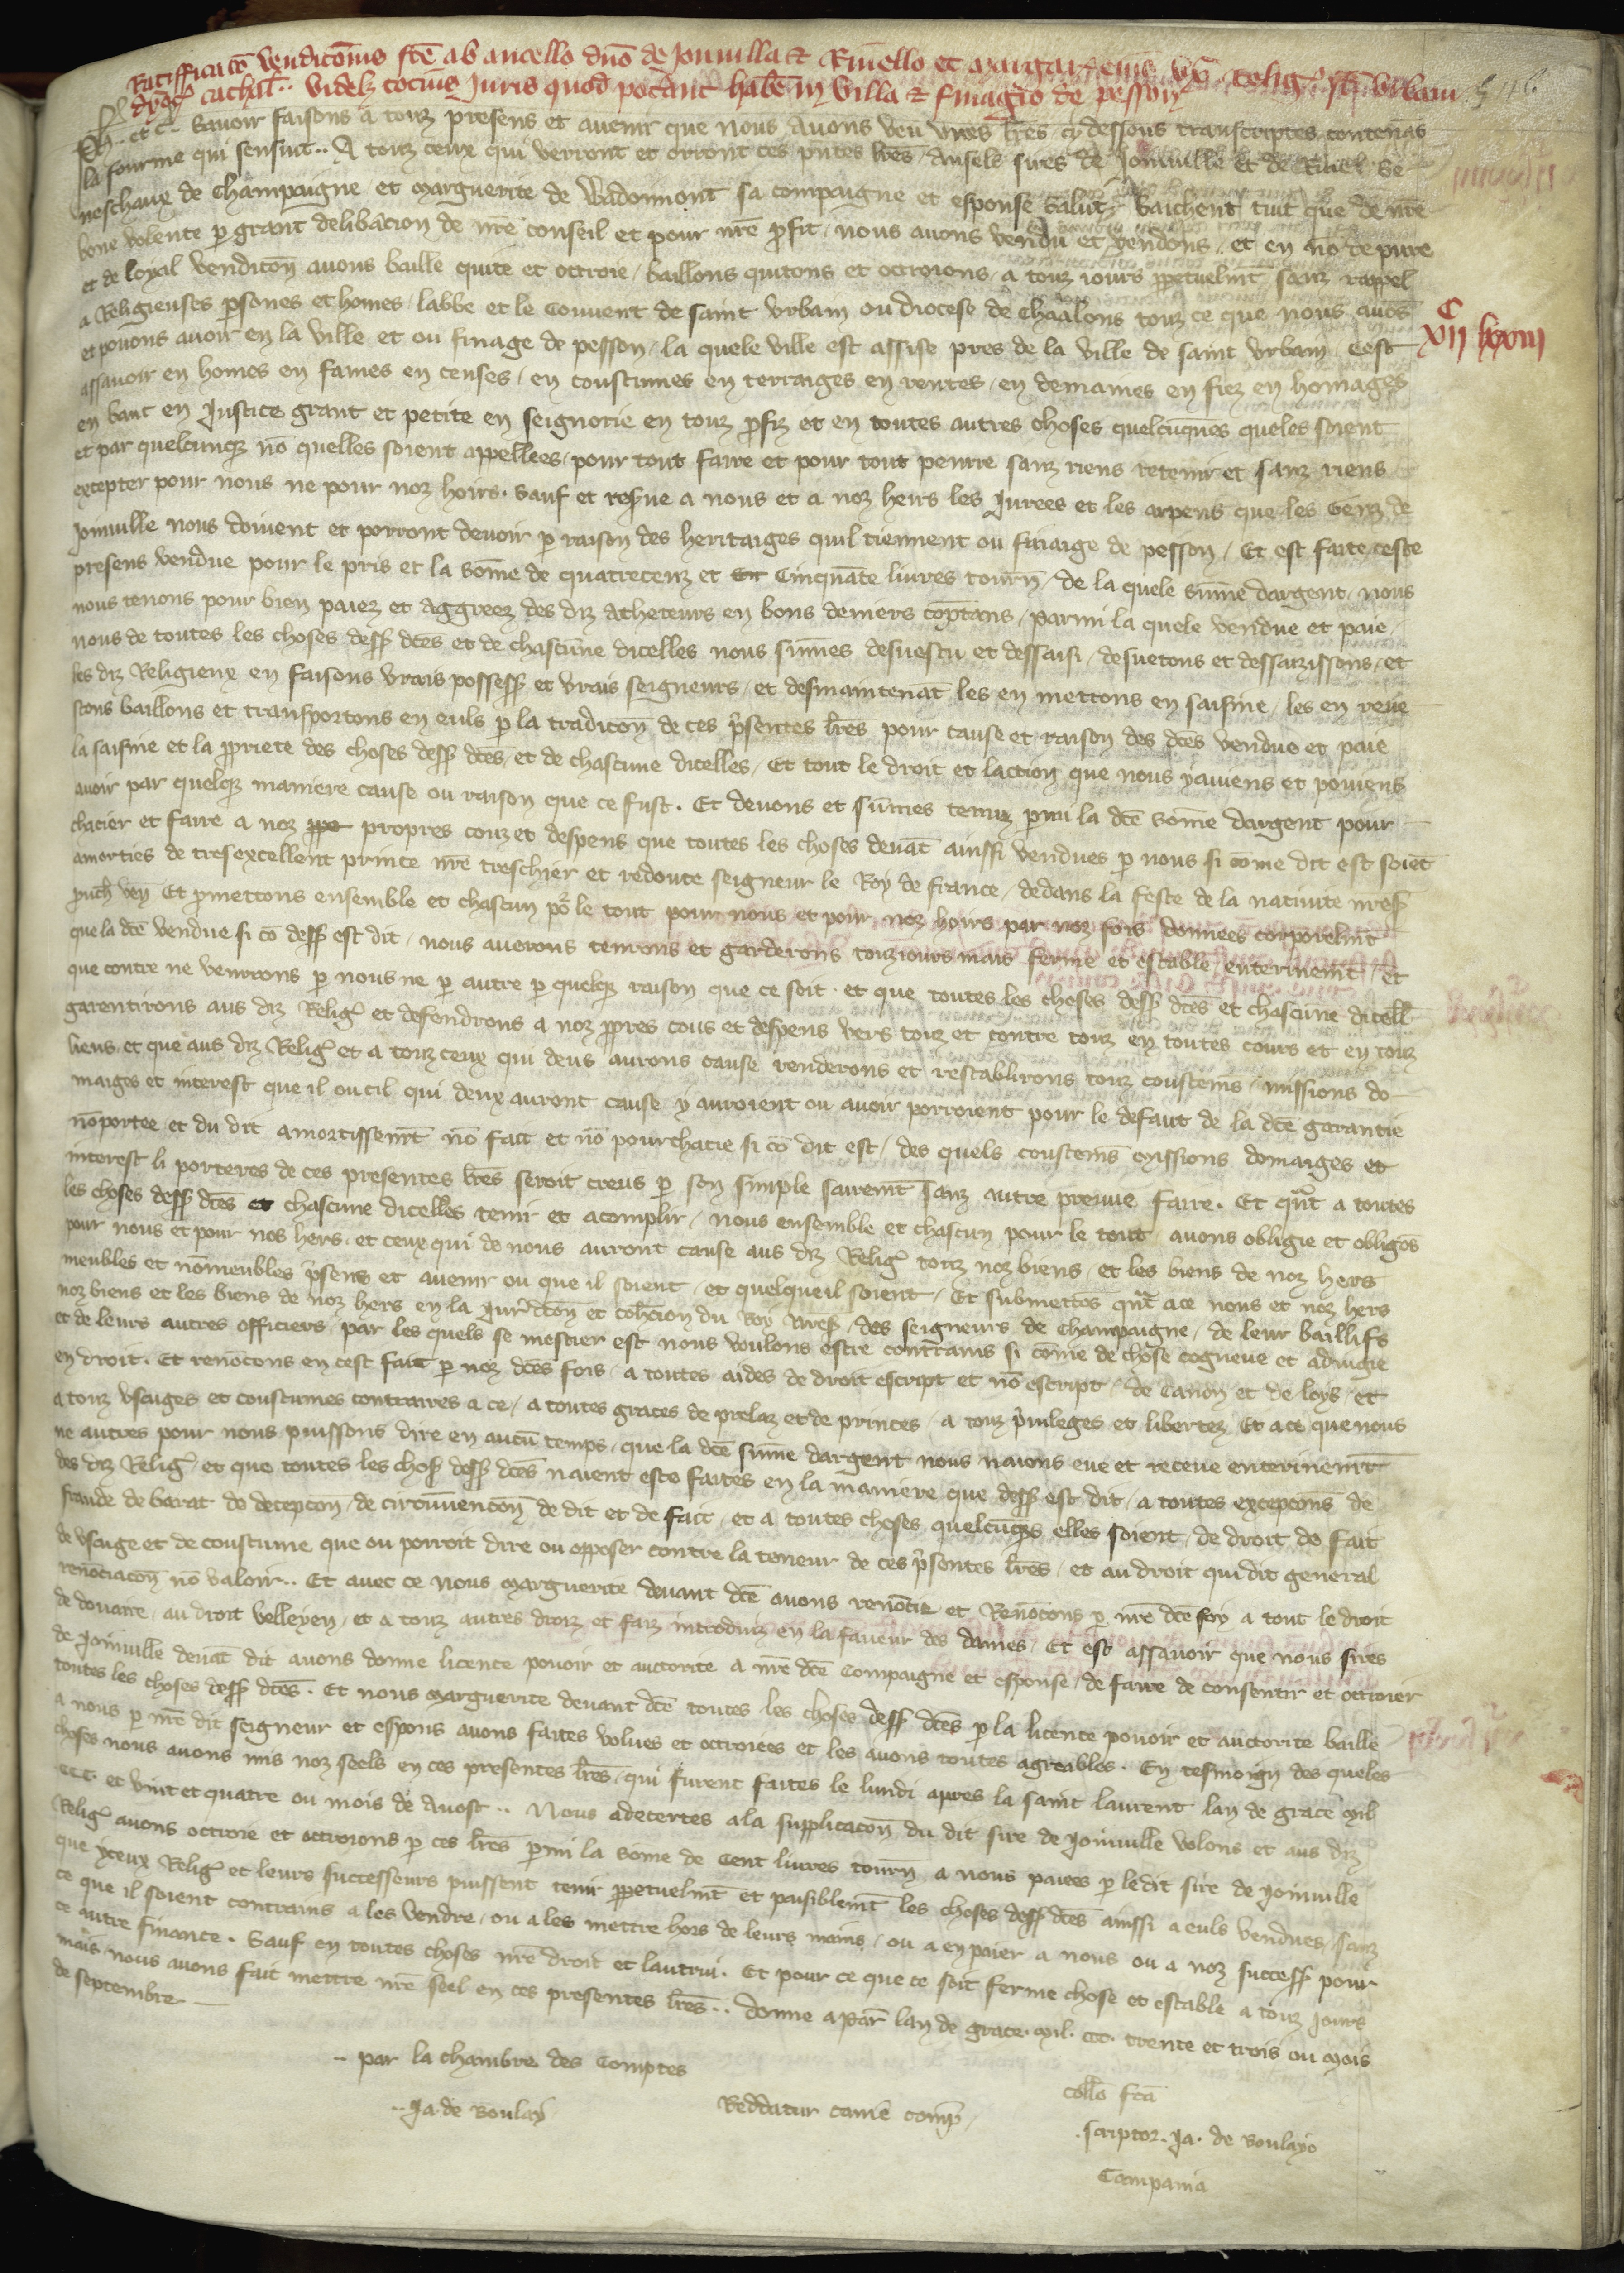 Ratifficatio vendicionis fcē ab ancello dn̄o de Jonvilla et Rinello et Margar. eius ux. relig. sc̄i Urbani
dyoc̄ cathal.. videlz tocius Juris quod potant habē in villa et finagio de pesson
Ph. et c̄. Savoir faisons a touz presens et avenir que nous avons veu unes lr̄es cy dessous transcriptes contenās
la fourme qui sensuit.. A touz ceux qui verront et orront ces pn̄tes lr̄es Ansels sires de Joinville et de Rinel Se
neschaux de Champaigne et Marguerite de Wadonmont sa compaigne et espouse salut. Saichent tuit que de nr̄e
bone volente p grant deliberacion de nr̄e conseil et pour nr̄e profit, nous avons vendu et vendons, et en nō de pure
et de loyal vendicōn avons baillé quite et octroie, baillons quitons et octroions, a touz iours ppetuelmt sanz rappel
a Religieuses psones et homes, labbe et le Couvent de saint Urbain ou diocese de Chaalons touz ce que nous avōs
et povons avoir en la ville et ou finage de pesson, la quele ville est assise pres de la ville de saint Urbain, Cest
XIIC LXXIII
assavoir en homes en fames en censes, en coustumes en terraiges en rentes, en demaines en fiez en homages
en banc en Justice grant et petite en seignorie en touz pfiz et en toutes autres choses quelcūques queles soient
et par quelcunqz nō quelles soient appellees, pour tout faire et pour tout penrre sanz riens retenir et sanz riens
excepter pour nous ne pour noz hoirs. Sauf et resvue a nous et a noz heirs les Jurees et les arpens que les Genz de
Joinville nous doivent et porront devoir p raison des heritaiges quil tiennent ou finaige de pesson, Et est faite ceste
presens vendue pour le pris et la somē de quatrecenz et Cinquāte livres tourn̄, de la quele sum̄e dargent, nous
nous tenons pour bien paiez et aggreez des diz acheteurs en bons deniers cōptans, parmi la quele vendue et paie,
nous de toutes les choses dess. dcēs et de chascune dicelles nous sum̄es desvestu et dessaisi, desvetons et dessaizissons, et
les diz Religieux en faisons vrais possess. et vrais seigneurs, et desmaintenāt les en mettons en saisine, les en reve
stons baillons et transportons en euls p la tradicōn de ces p̄sentes lr̄es pour cause et raison des dcēs vendue et paie
la saisine et la ppriete des choses dess. dcēs, et de chascune dicelles, Et tout le droit et laction que nous y aviens et poviens
avoir par quelqz maniere cause ou raison que ce fust. Et devons et sum̄es tenuz pmi la dcē somē dargent pour
chacier et faire a noz propres couz et despens que toutes les choses devāt ainssi vendues p nous si come dit est soiēt
amorties de tresexcellent prince nr̄e treschier et redoute seigneur le Roy de france, dedans la feste de la nativite nres.
pūch. ven. Et pmettons ensemble et chascun po le tout pour nous et pour noz hoirs par noz fois donnees corporelmt
que la dcē vendue si cō dess. est dit, nous averons tenrons et garderons touziours mais ferme et estable, enterinemt, et
que contre ne venrrons p nous ne p autre p quelqz raison que ce soit. et que toutes les choses dess. dcēs et chascune dicell
garentirons aus diz Relig. et defendrons a noz ppres cous et despens vers touz et contre touz en toutes cours et en touz
liens, et que aus diz Relig. et a touz ceux qui deus aurons cause renderons et restablirons touz coustems, missions do
maiges et interest que il ou cil qui deux auront cause y auroient ou avoir porroient pour le defaut de la dcē garantie
nō portee et du dit amortissemt nō fait et nō pourchacie si cō dit est, des quels coustems missions domaiges et
interest li porteres de ces presentes lr̄es seroit creus p son simple sairemt sanz autre preuve faire. Et qnt a toutes
les choses dess. dcēs et chascune dicelles tenir et acomplir, nous ensemble et chascun pour le tout avons obligie et obligōs
pour nous et pour nos hers, et ceux qui de nous auront cause aus diz Relig. touz noz biens, et les biens de noz hers
meubles et nōmeubles p̄sens et avenir ou que il soient, et quelqueil soient, Et submettōs qnt ace nous et noz hers
noz biens et les biens de noz hers en la Jurid̄cōn et cohercion du Roy nres., des seigneurs de Champaigne, de leur baillifs
et de leurs autres officiers, par les quels se mestier est nous voulons estre contrains si come de chose cogneue et adiugie
en droit. Et renōcons en cest fait p noz dcēs fois, a toutes aides de droit escript et nō escript, de Canon et de loys, et
a touz usaiges et coustumes contraires a ce, a toutes graces de prelaz et de princes, a touz p̄vileges et libertez, Et ace que nous
ne autres pour nous puissons dire en aucū temps, que la dcē sum̄e dargent nous naions eue et receue enterinemt
des diz Relig. et que toutes les chos. dess. dcēs naient este faites en la maniere que dess. est dit, a toutes excepcōns de
fraude de barat de decepcōn, de circunvencōn de dit et de fait, et a toutes choses quelcūqes elles soient, de droit de fait
de usaige et de coustume que ou porroit dire ou opposer contre la teneur de ces p̄sentes lr̄es, et au droit qui dit general
renōciacōn nō valoir.. Et avec ce nous Marguerite devant dcē avons renōcie et Renōcons p nr̄e dcē foy a tout le droit
de douaire, au droit velleyen, et a touz autres droiz et faiz introduiz en la faveur des dames, Et est assavoir que nous sires
de Joinville devāt dit avons donne licence povoir et auctorite a nr̄e dcē Compaigne et espouse, de faire de consentir et octroier
toutes les choses dess. dcēs. Et nous Marguerite devant dcē toutes les choses dess. dcēs p la licence povoir et auctorite baillé
a nous p nr̄e dit seigneur et espous avons faites volues et octroiees et les avons toutes agreables. En tesmoign des queles
choses nous avons mis noz seels en ces presentes lr̄es, qui furent faites le lundi apres la saint laurent lan de grace mil
CCC. et vint et quatre ou mois de Aoust.. Nous adecertes a la supplicacōn du dit sire de Joinville volons et aus diz
Relig. avons octroie et octroions p ces lr̄es pmi la some de Cent livres tourn̄ a nous paiees p ledit sire de Joinville
que yceux Relig. et leurs successeurs puissent tenir ppetuelmt et paisiblemt les choses dess. dcēs ainssi a euls vendues, sanz
ce que il soient contrains a les vendre, ou a les mettre hors de leurs mains, ou a en paier a nous ou a noz success. pour
ce autre finance. Sauf en toutes choses nr̄e droit et lautrui. Et pour ce que ce soit ferme chose et estable a touz Jours
mais nous avons fait mettre nr̄e seel en ces presentes lr̄es.. donne a Par. lan de grace. Mil. CCC. trente et trois ou Mois
de septembre
.. par la chambre des Comptes
.. Ja. de Boulay
Reddatur camē comp.
coll̄o fcā
. scriptor. Ja. de Boulayo
Campania